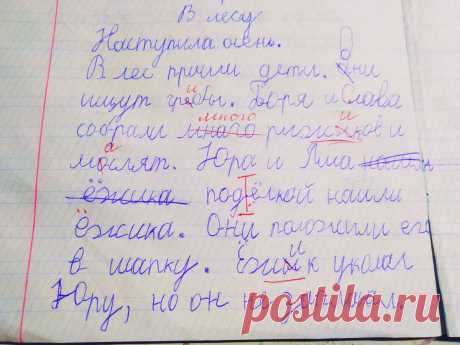 В лесу
Наступила осень.
В лес пришли дети. Они
ищут грибы. Боря и Слава
собрали много рижиков и
маслят. Юра и
ёжика под ёлкой нашли
ёжика. Они положили его
в шапку. Ёжик уколол
Юру, но он не
postila.ru